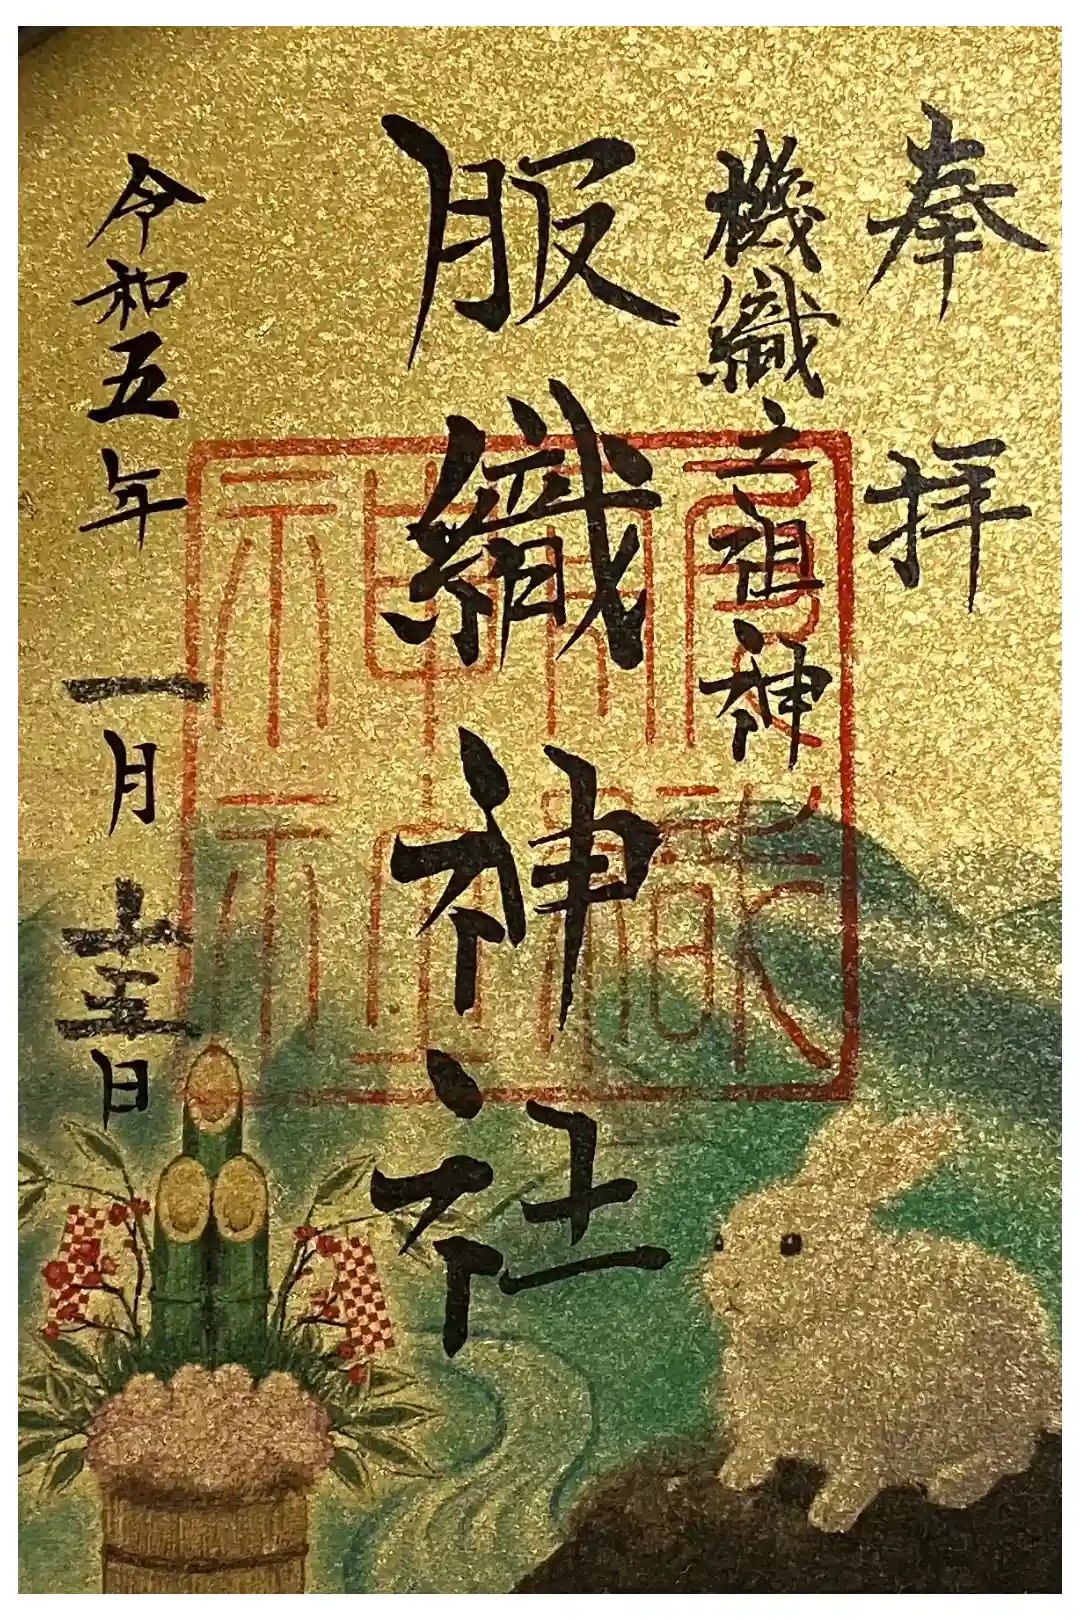 奉拝
機織之祖神
服織神社
令和五年一月 日
服織神社